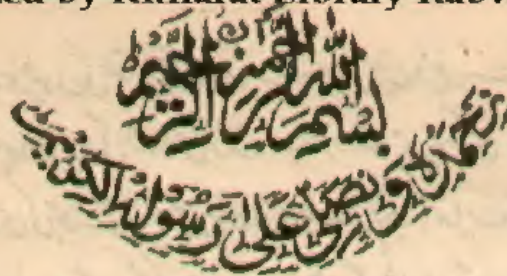 بسم الله الرحمن الرحيم
نحمده ونصلی علی رسوله الکریم